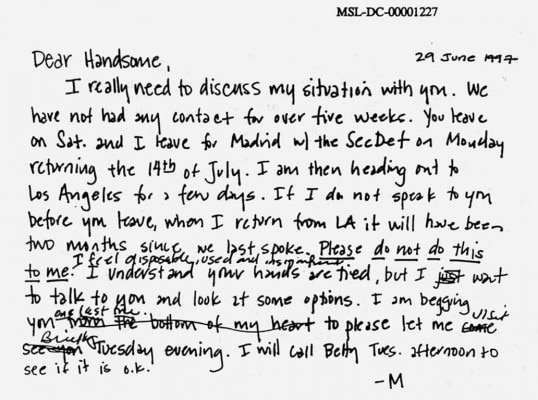 MSL-DC-00001227
29 June 1997
Dear Handsome,
I really need to discuss my situation with you. We
have not had any contact for over five weeks. You leave
on Sat. and I leave for Madrid w/ the SecDef on Monday
returning the 14th of July. I am then heading out to
Los Angeles for a few days. If I do not speak to you
before you leave, when I return from LA it will have been
two months since we last spoke. Please do not do this
I feel disposable, used and insignificant.
to me. I understand your hands are tied, but I just want
to talk to you and look at some options. I am begging
one last time visit
you from the bottom of my heart to please let me come
Briefly
see you Tuesday evening. I will call Betty Tues. afternoon to
see if it is o.k.
-M